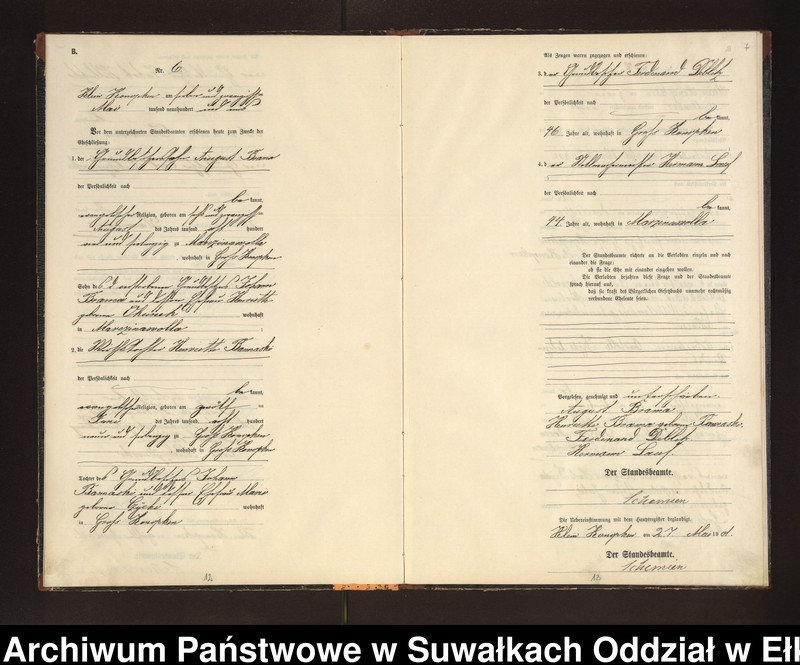 B.
Nr. 6.
Klein Konopken am sieben und zwanzigsten
Mai tausend neunhundert und eins
Vor dem unterzeichneten Standesbeamten erschienen heute zum Zwecke der
Eheschließung:
1. der Grundbesitzersohn August Brama
der Persönlichkeit nach
be kannt,
evangelischer Religion, geboren am
des Jahres tausend acht hundert
zu Marczinawolla
, wohnhaft in Groß Konopken
Sohn des verstorbenen Grundbesitzers Johann
Brama und dessen Ehefrau Henriette
geborene wohnhaft
in Marczinawolla ;
2. die Wirthstochter Henriette
der Persönlichkeit nach
be kannt,
evangelischer Religion, geboren am zwölften
Juni des Jahres tausend acht hundert
neun und siebzig zu Groß Konopken
, wohnhaft in Groß Konopken
Tochter des Grundbesitzers Johann
und dessen Ehefrau Marie
geborene wohnhaft
in Groß Konopken
12
7
Als Zeugen waren zugezogen und erschienen:
3. der Grundbesitzer Ferdinand
der Persönlichkeit nach
be kannt,
46 Jahre alt, wohnhaft in Groß Konopken
4. der Hermann
der Persönlichkeit nach
be kannt,
44 Jahre alt, wohnhaft in Marczinawolla
Der Standesbeamte richtete an die Verlobten einzeln und nach
einander die Frage:
ob sie die Ehe mit einander eingehen wollen.
Die Verlobten bejahten diese Frage und der Standesbeamte
sprach hierauf aus,
daß sie kraft des Bürgerlichen Gesetzbuchs nunmehr rechtmäßig
verbundene Eheleute seien.
Vorgelesen, genehmigt und unterschrieben.
August Brama
Henriette Brama geborene
Ferdinand
Hermann
Der Standesbeamte.
Schemien
Die Uebereinstimmung mit dem Hauptregister beglaubigt.
Klein Konopken am 27 Mai 1901.
Der Standesbeamte.
Schemien
13
Archiwum Państwowe w Suwałkach Oddział w Ełk